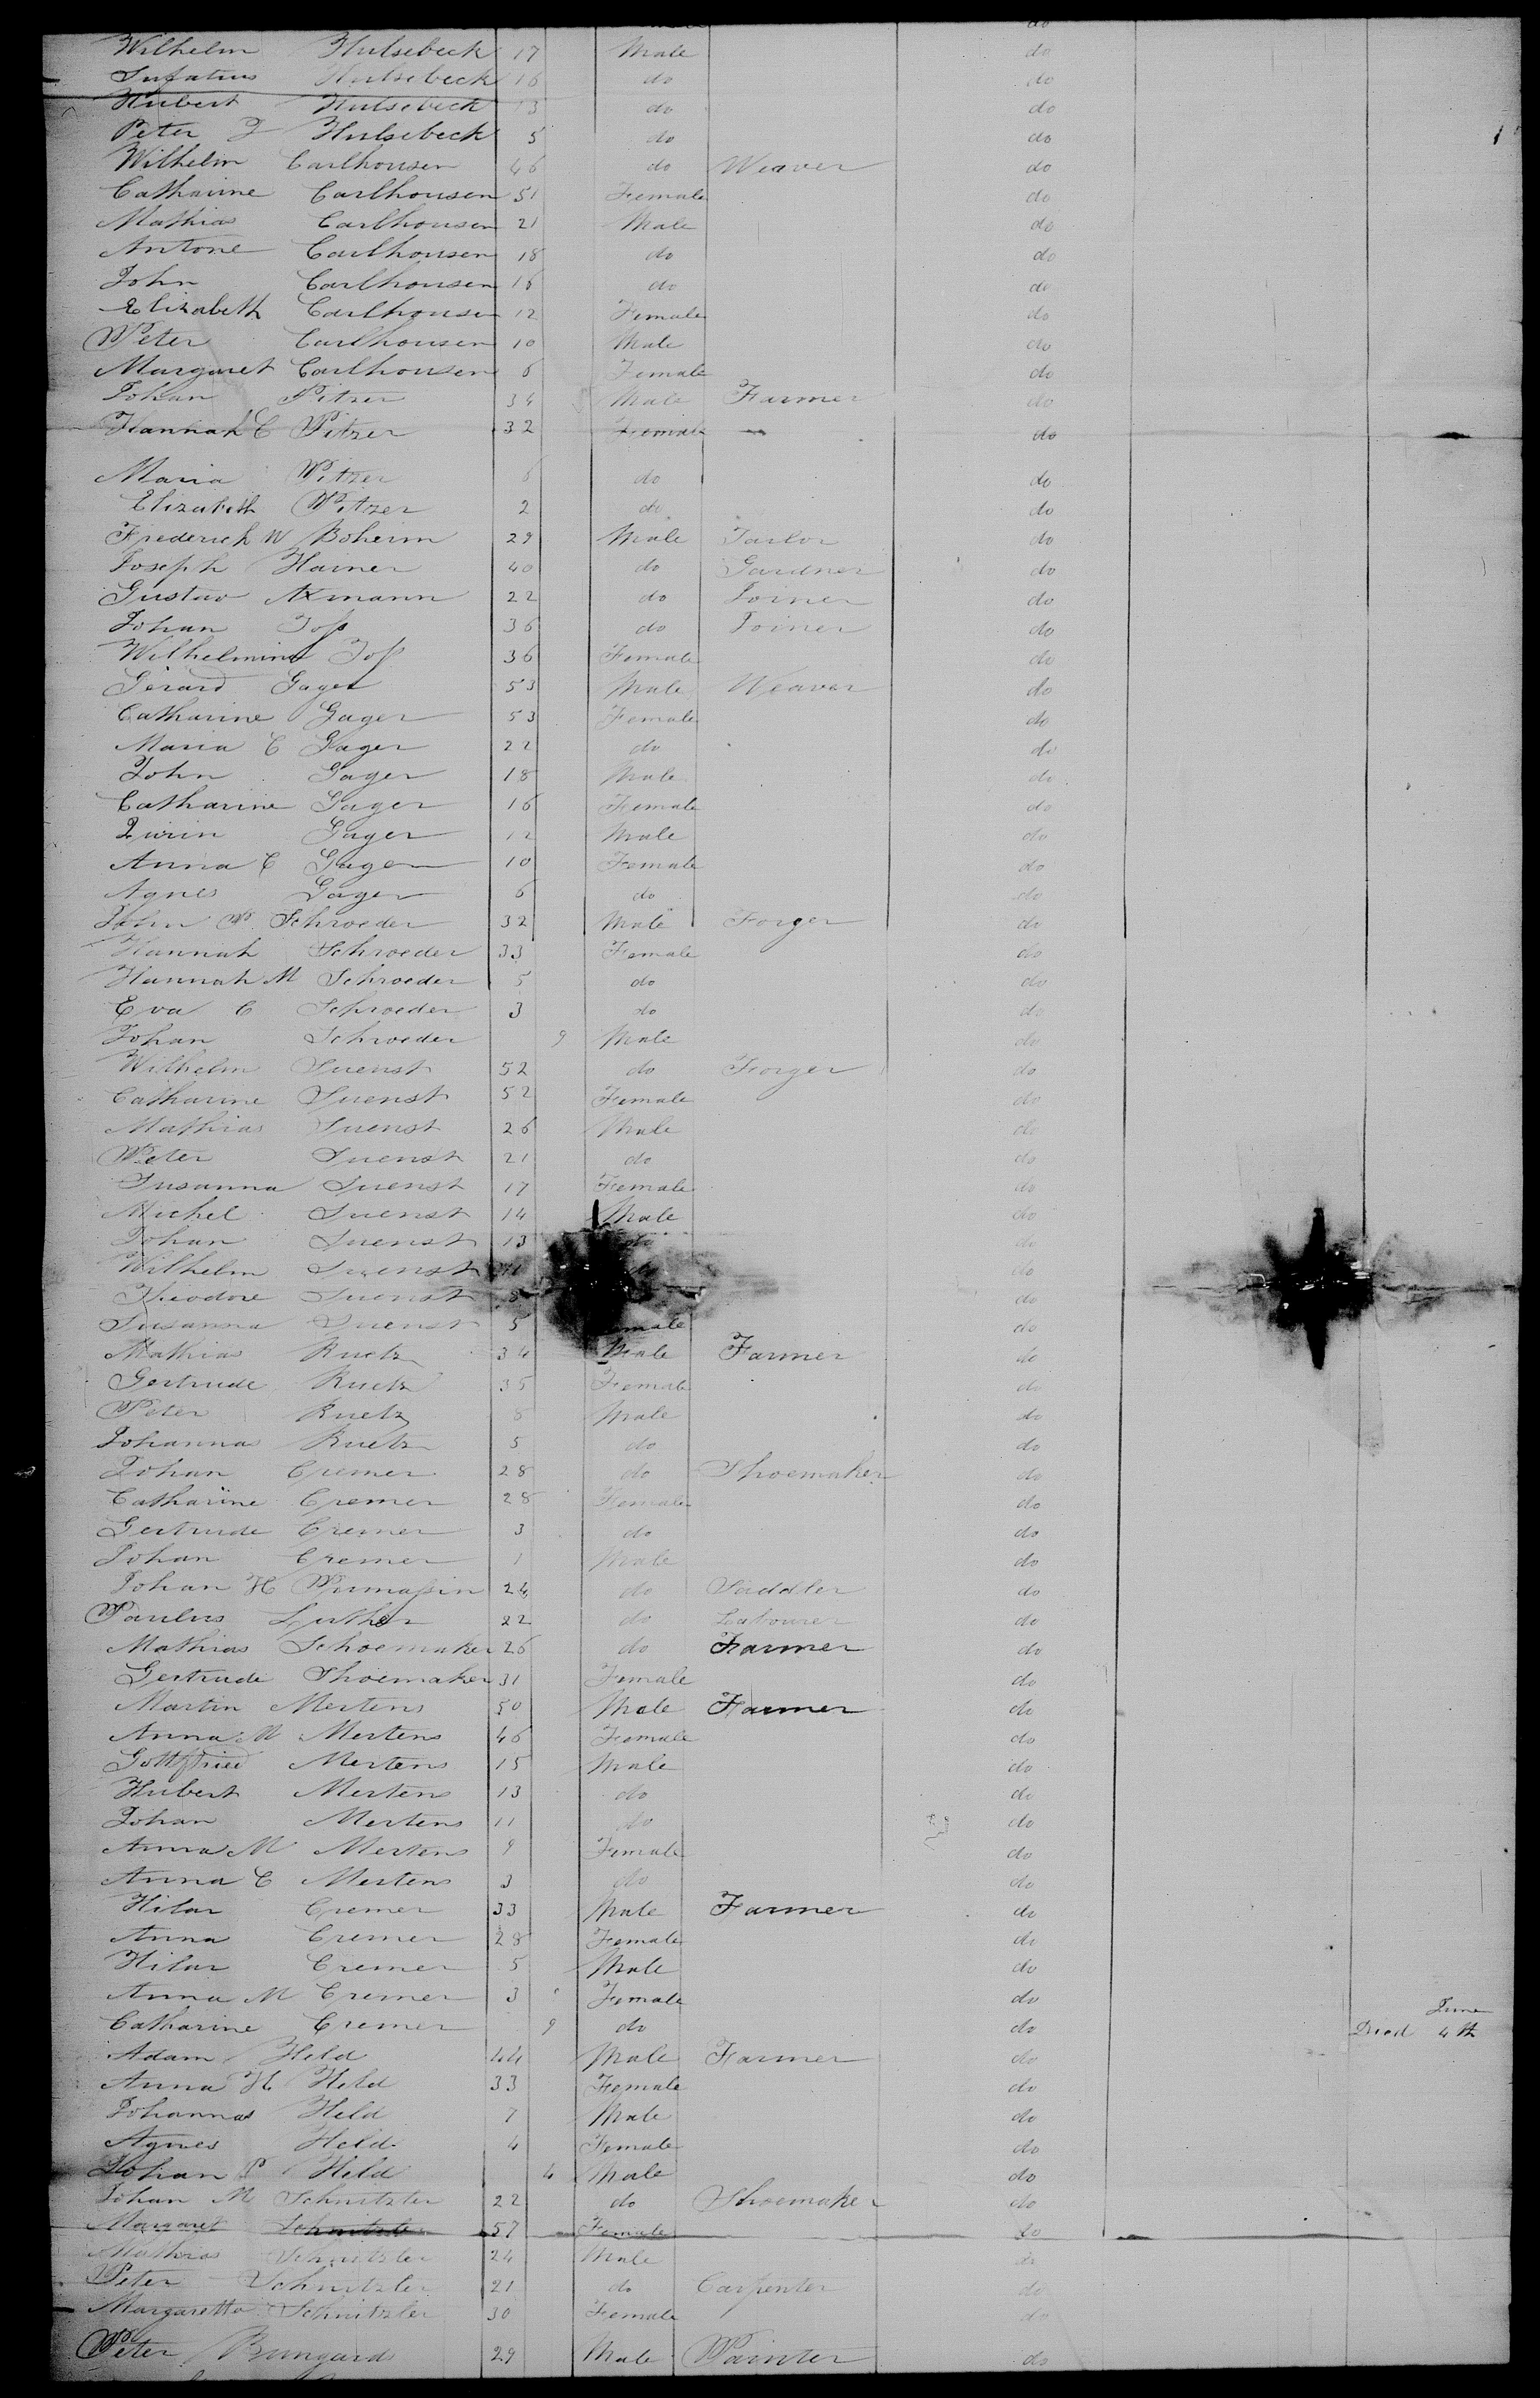 do
Wilhelm Hulsebeck 17 Male do
Hulsebeck 16 do do
Hubert Hulsebeck 13 do do
Peter J Hulsebeck 5 do do
Wilhelm Carlhousen 46 do Weaver do
Catharine Carlhousen 51 Female do
Mathias Carlhousen 21 Male do
Antone Carlhousen 18 do do
John Carlhousen 16 do do
Elizabeth Carlhousen 12 Female do
Peter Carlhousen 10 Male do
Margaret Carlhousen 6 Female do
Johan Pitzer 34 Male Farmer do
Hannah C Pitzer 32 Female do
Maria Pitzer 6 do do
Elizabeth Pitzer 2 do do
Frederich W Boheim 29 Male Tailor do
Joseph Hainer 40 do Gardner do
Gustav Axmann 22 do Joiner do
Johan Joß 36 do Joiner do
Wilhelmina Joß 36 Female do
Gerard Gager 53 Male Weaver do
Catharine Gager 53 Female do
Maria C Gager 22 do do
John Gager 18 Male do
Catharine Gager 16 Female do
Quirin Gager 12 Male do
Anna C Gager 10 Female do
Agnes Gager 6 do do
John P Schroeder 32 Male Forger do
Hannah Schroeder 33 Female do
Hannah M Schroeder 5 do do
Eva C Schroeder 3 do do
Johan Schroeder 9 Male do
Wilhelm Suenst 52 do Forger do
Catharine Suenst 52 Female do
Mathias Suenst 26 Male do
Peter Suenst 21 do do
Susanna Suenst 17 Female do
Michel Suenst 14 Male do
Johan Suenst 13 do do
Wilhelm Suenst do
Theodore Suenst 8 do
Susanna Suenst 5 Female do
Mathias Ruetz 34 Male Farmer do
Gertrude Ruetz 35 Female do
Peter Ruetz 8 Male do
Johannas Ruetz 5 do do
Johan Cremer 28 do Shoemaker do
Catharine Cremer 28 Female do
Gertrude Cremer 3 do do
Johan Cremer 1 Male do
Johan H Pirmaßin 24 do Saddler do
Paulus Luther 22 do Labourer do
Mathias Schoemaker 26 do Farmer do
Gertrude Shoemaker 31 Female do
Martin Mertens 50 Male Farmer do
Anna M Mertens 46 Female do
Gottfried Mertens 15 Male do
Hubert Mertens 13 do do
Johan Mertens 11 do do
Anna M Mertens 9 Female do
Anna C Mertens 3 do do
Hilar Cremer 33 Male Farmer do
Anna Cremer 28 Female do
Hilar Cremer 5 Male do
Anna M Cremer 3 Female do
Catharine Cremer 9 do do Died June 4th
Adam Held 44 Male Farmer do
Anna H Held 33 Female do
Johannas Held 7 Male do
Agnes Held 4 Female do
Johan P Held 4 Male do
Johan M Schnitzler 22 do Shoemaker do
Margaret Schnitzler 57 Female do
Mathias Schnitzler 24 Male do
Peter Schnitzler 21 do Carpenter do
Margaretta Schnitzler 30 Female do
Peter Bungard 29 Male Painter do